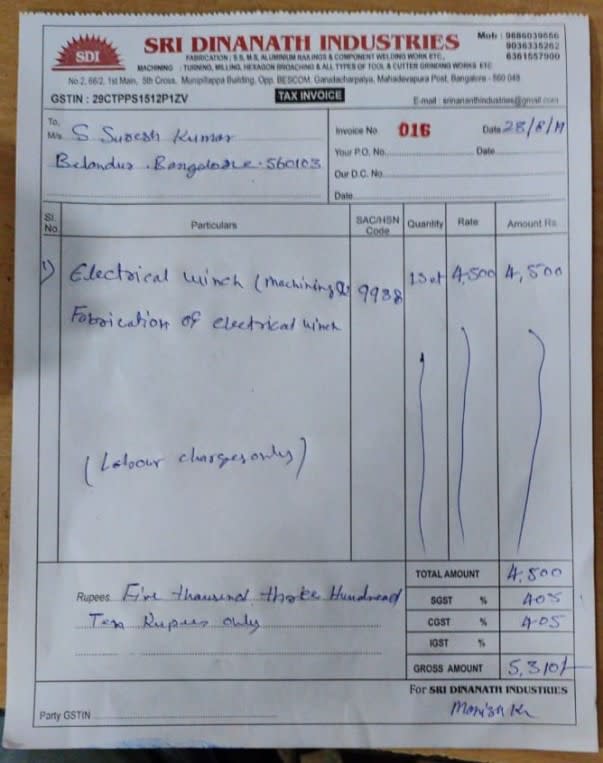 SRI DINANATH INDUSTRIES
SDI
Mob : 9686039666
9036335262
6361557900
FABRICATION : S.S, M.S, ALUMINIUM RAILINGS & COMPONENT WELDING WORK ETC.,
MACHINING : TURNING, MILLING, HEXAGON BROACHING & ALL TYPES OF TOOL & CUTTER GRINDING WORKS ETC
No.2, 66/2, 1st Main, 5th Cross, Munipillappa Building, Opp. BESCOM, Garudacharpalya, Mahadevapura Post, Bangalore - 560 048
GSTIN : 29CTPPS1512P1ZV
TAX INVOICE
E-mail : srinananthindustries@gmail.com
To,
M/s S Suresh Kumar
Belandur . Bangalore . 560103
Invoice No. 016 Date 28/8/19
Your P.O. No. Date
Our D.C. No.
Date
Sl. No. Particulars SAC/HSN Code Quantity Rate Amount Rs.
1) Electrical winch (machining & 9988 1 Set 4,500 4,500
Fabrication of electrical winch
(Labour charges only)
TOTAL AMOUNT 4,500
Rupees Five thousand three Hundread
Ten Rupees only
SGST % 405
CGST % 405
IGST %
GROSS AMOUNT 5,310/-
For SRI DINANATH INDUSTRIES
Party GSTIN